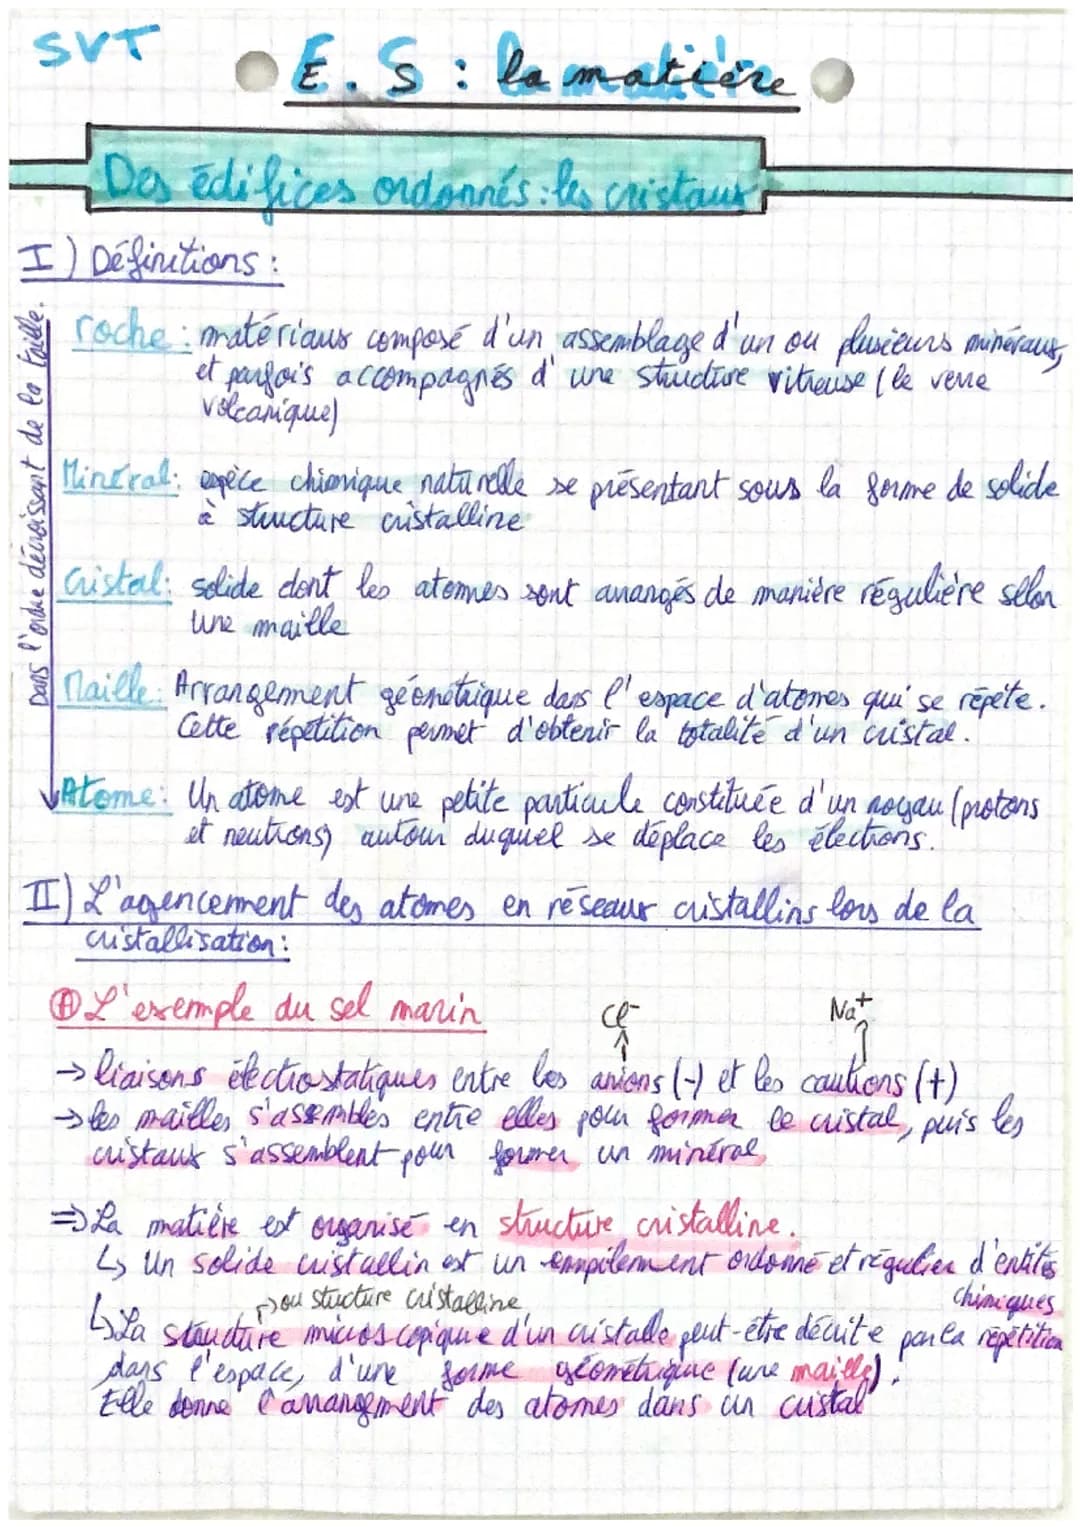 SVT
E.S : la matière
Des édifices ordonnés : les cristaux
I) Définitions :
Dans l'ordre décroissant de la taille.
roche : matériaux composé d'un assemblage d'un ou plusieurs minéraux,
et parfois accompagnés d'une structure vitreuse (le verre
volcanique)
Minéral : espèce chimique naturelle se présentant sous la forme de solide
à structure cristalline
Cristal : solide dont les atomes sont arrangés de manière régulière selon
une maille
Maille : Arrangement géométrique dans l'espace d'atomes qui se répète.
Cette répétition permet d'obtenir la totalité d'un cristal.
Atome : Un atome est une petite particule constituée d'un noyau (protons
et neutrons) autour duquel se déplace les électrons.
II) L'agencement des atomes en réseaux cristallins lors de la
cristallisation :
Ⓐ L'exemple du sel marin
Cl⁻ Na⁺
→ liaisons électrostatiques entre les anions (-) et les cautions (+)
→ les mailles s'assembles entre elles pour former le cristal, puis les
cristaux s'assemblent pour former un minéral
⇒ La matière est organisé en structure cristalline.
↳ Un solide cristallin est un empilement ordonné et régulier d'entités
chimiques
↱ ou stucture cristalline
↳ La structure microscopique d'un cristalle peut-être décrite par la répétition
dans l'espace, d'une forme géométrique (une maille).
Elle donne l'arrangement des atomes dans un cristal